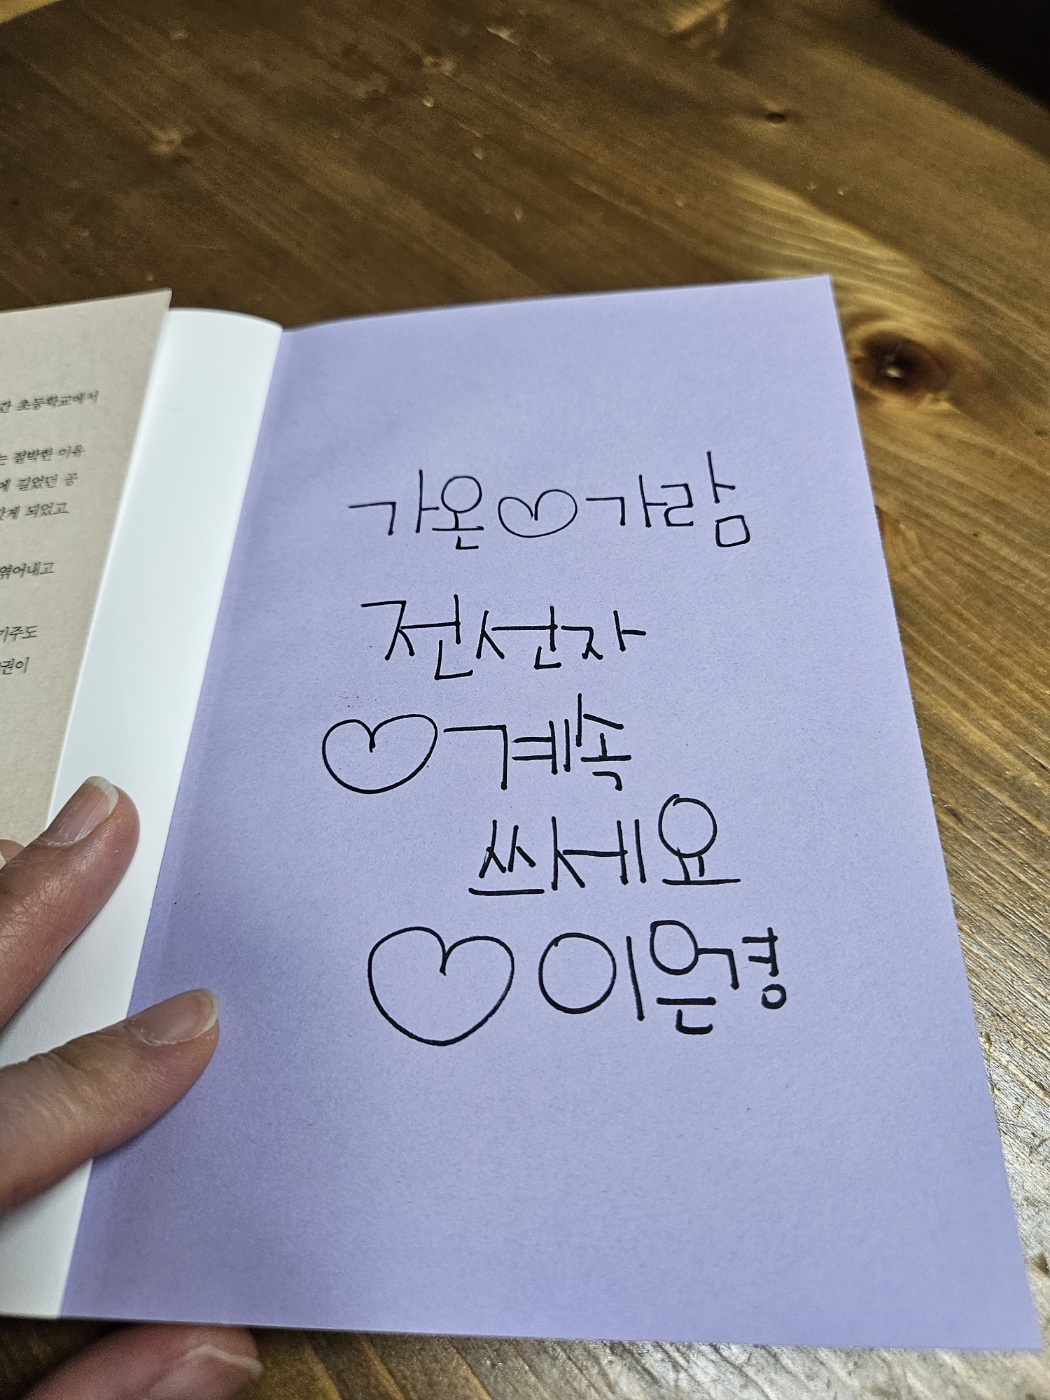 간 초등학교에서
는 절박한 이유
에 길었던 공
갖게 되었고
엮어내고
기주도
권이
가온♡가람
전선자
♡계속
쓰세요
♡이은경